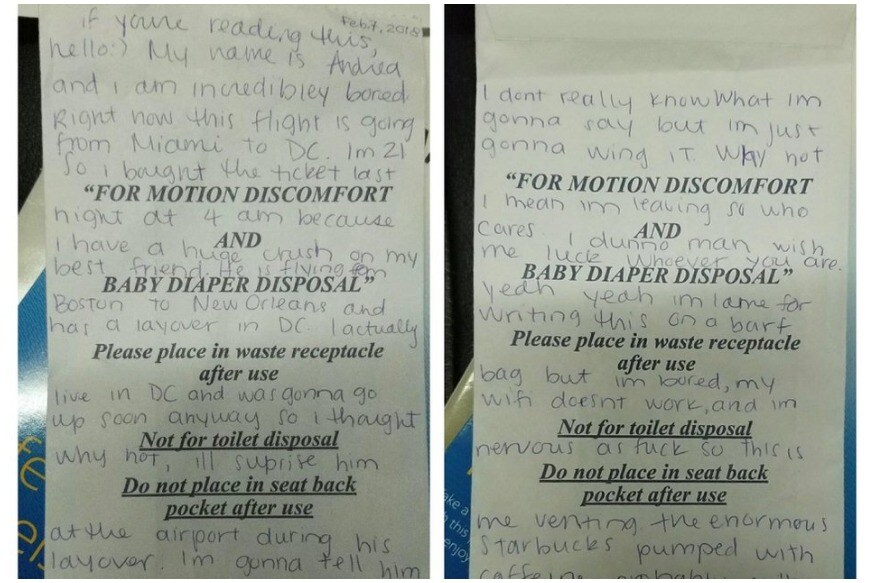 Feb. 7, 2015
if youre reading this,
hello:) My name is Andrea
and i am incredibley bored.
Right now this flight is going
from Miami to DC. Im 21
So i bought the ticket last
"FOR MOTION DISCOMFORT
night at 4 am because
AND
i have a huge crush on my
best friend. He is flying from
BABY DIAPER DISPOSAL"
Boston to New Orleans and
has a layover in DC. I actually
Please place in waste receptacle
after use
live in DC and was gonna go
up soon anyway so i thought
Not for toilet disposal
why not, ill suprise him
Do not place in seat back
pocket after use
at the airport during his
layover. Im gonna tell him
I dont really know what im
gonna say but im just
gonna wing it. Why not
"FOR MOTION DISCOMFORT
I mean im leaving so who
cares I dunno man wish
AND
me luck whoever you are.
BABY DIAPER DISPOSAL"
yeah yeah im lame for
writing this on a barf
Please place in waste receptacle
after use
bag but im bored, my
wifi doesnt work, and im
Not for toilet disposal
nervous as fuck so this is
Do not place in seat back
pocket after use
me venting. the enormous
Starbucks pumped with
caffeine